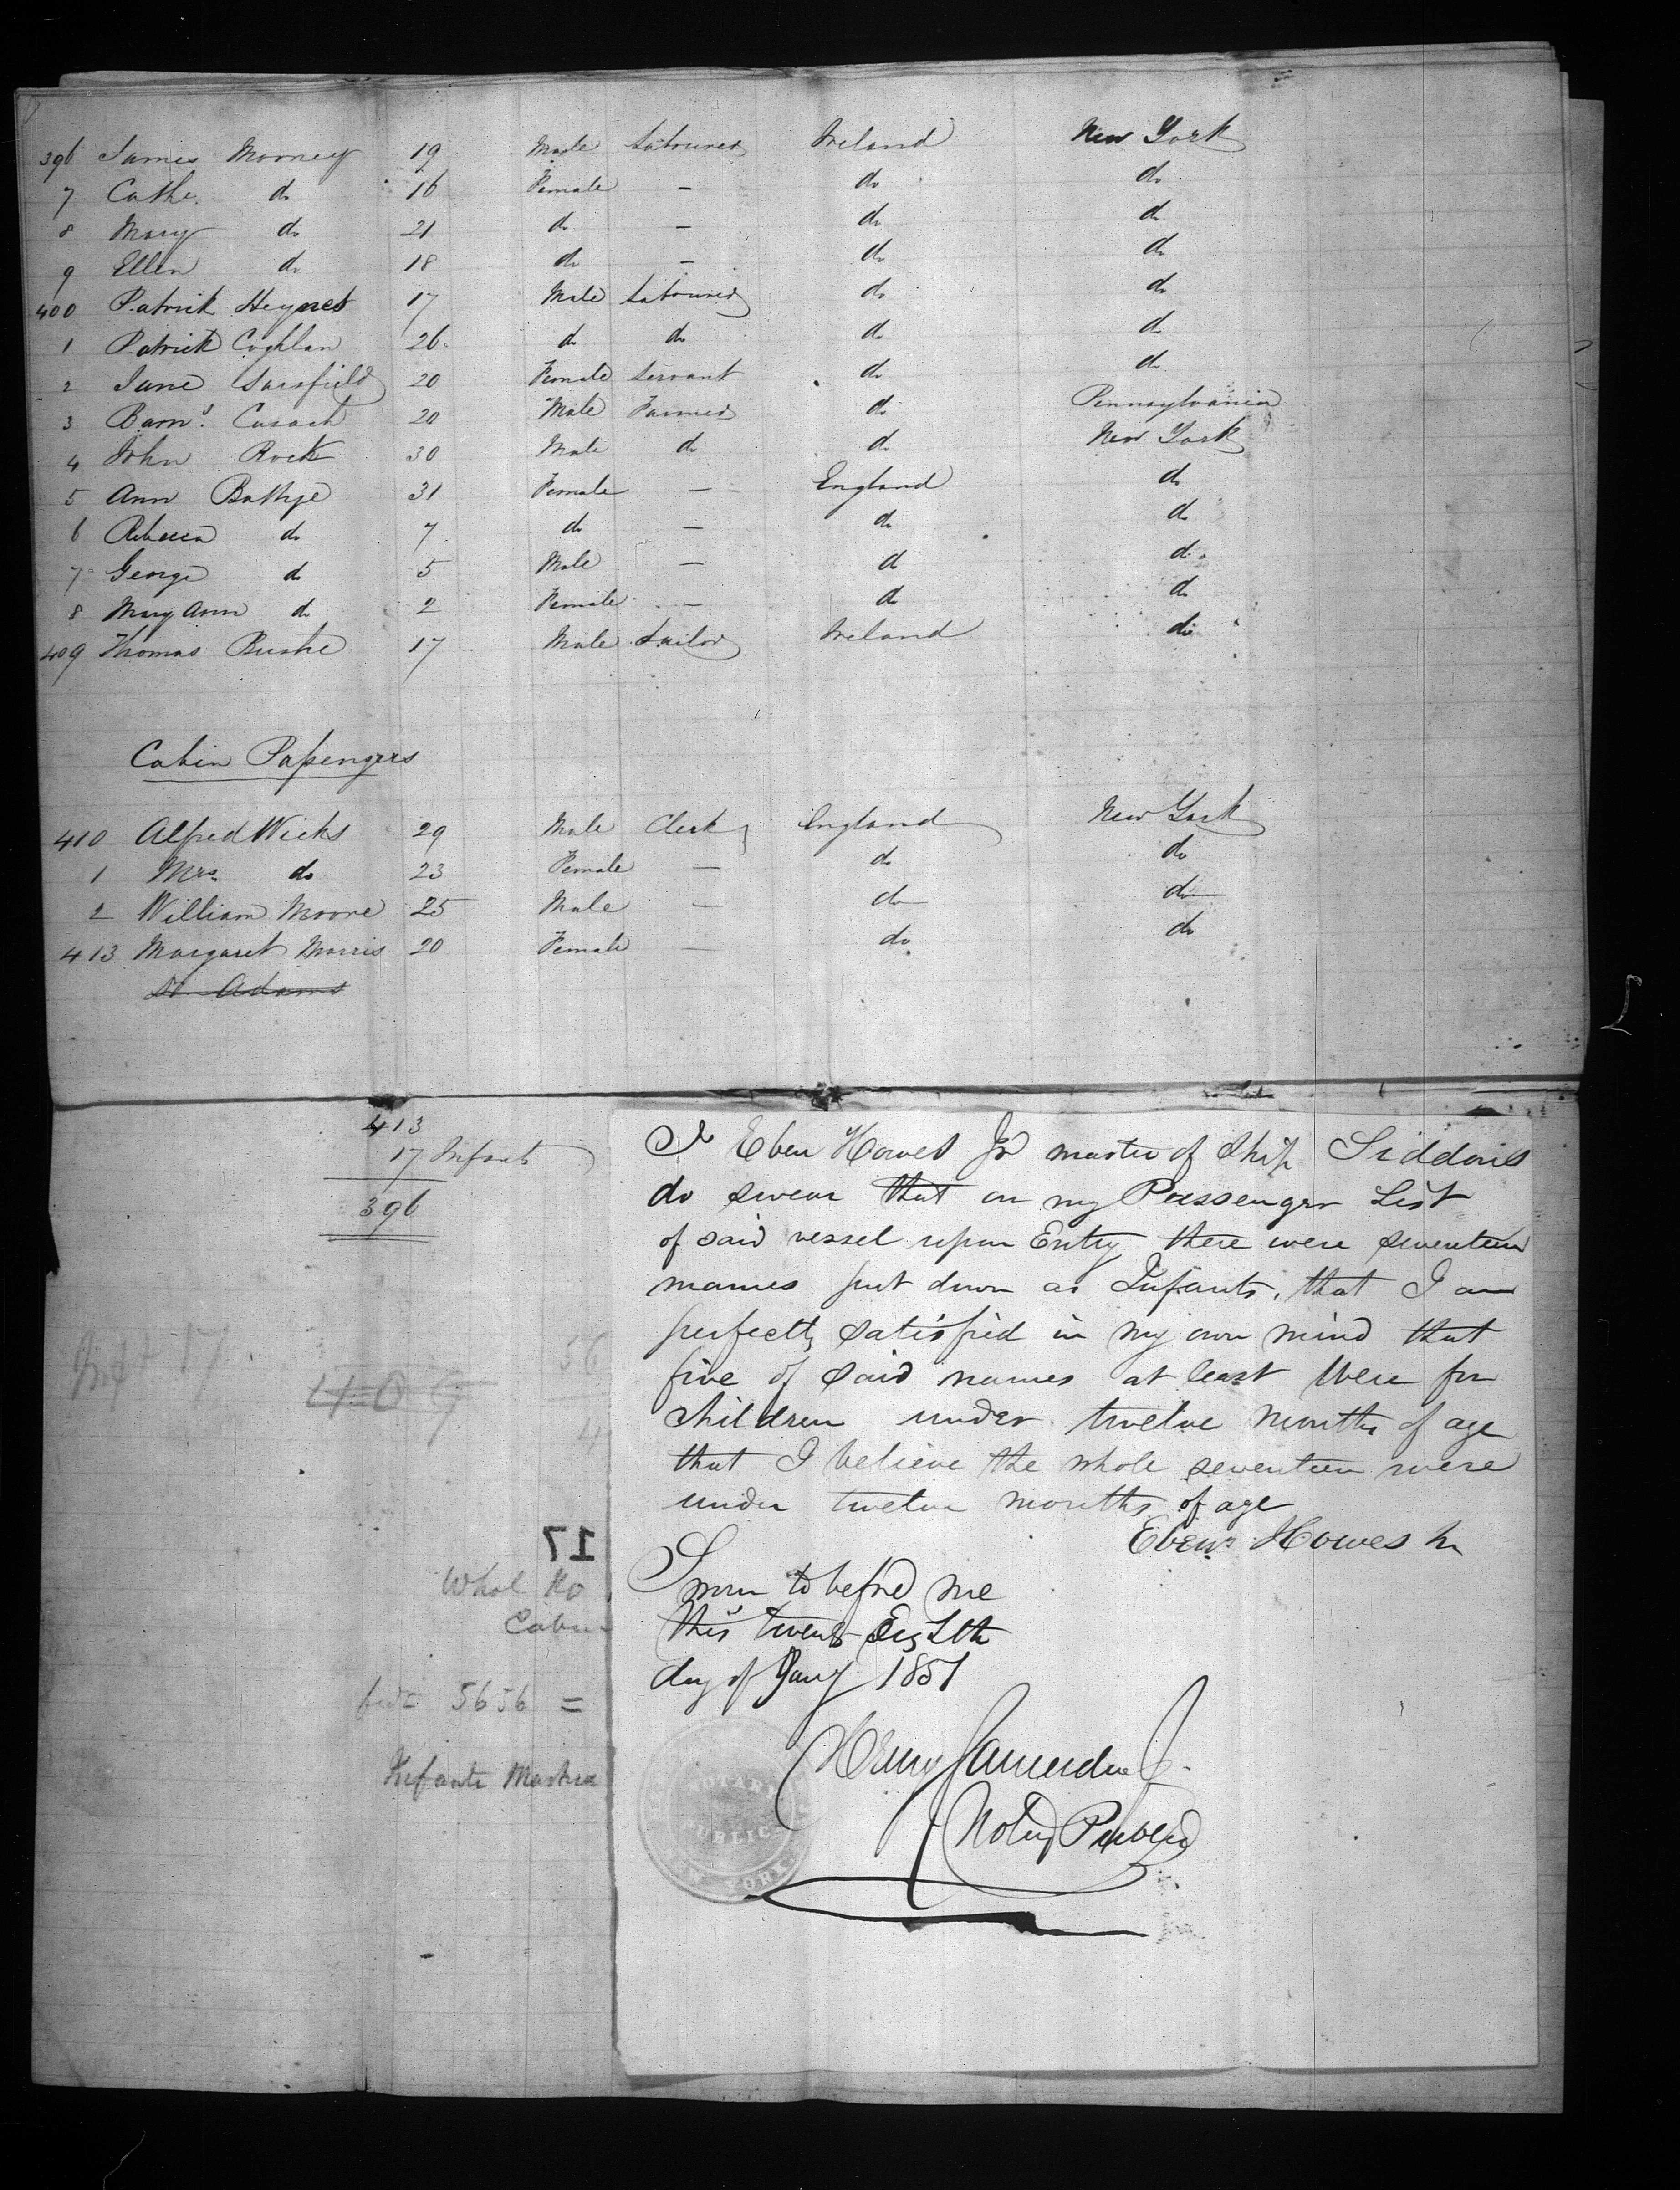 396 James Mooney 19 Male Labourer Ireland New York
7 Cathe. do 16 Female — do do
8 Mary do 21 do — do do
9 Ellen do 18 do — do do
400 Patrick Heynes 17 Male Labourer do do
1 Patrick Coghlan 26 do do do do
2 Jane Sarsfield 20 Female Servant do do
3 Barnd. Cusack 20 Male Farmer do Pennsylvania
4 John Rock 30 Male do do New York
5 Ann 31 Female — England do
6 Rebecca do 7 do — do do
7 George do 5 Male — do do
8 Mary Ann do 2 Female — do do
409 Thomas Burke 17 Male Tailor Ireland do
Cabin Passengers
410 Alfred Wicks 29 Male Clerk England New York
1 Mrs. do 23 Female — do do
2 William Moore 25 Male — do do
413 Margaret Morris 20 Female — do do
Dr Adams
413
17 Infants
396
I Eben Howes Jr master of Ship Siddons
do swear that on my Passenger List
of said vessel upon Entry there were seventeen
names put down as Infants, that I am
perfectly satisfied in my own mind that
five of said names at least were for
children under twelve months of age
that I believe the whole seventeen were
under twelve months of age
Eben. Howes Jr
Sworn to before me
this twenty Eighth
day of Jany 1851
Henry
Notary Public
NOTARY
PUBLIC
NEW YORK
Inf 17
409
56
4
17
Whol No
Cabin
5656 =
Infants